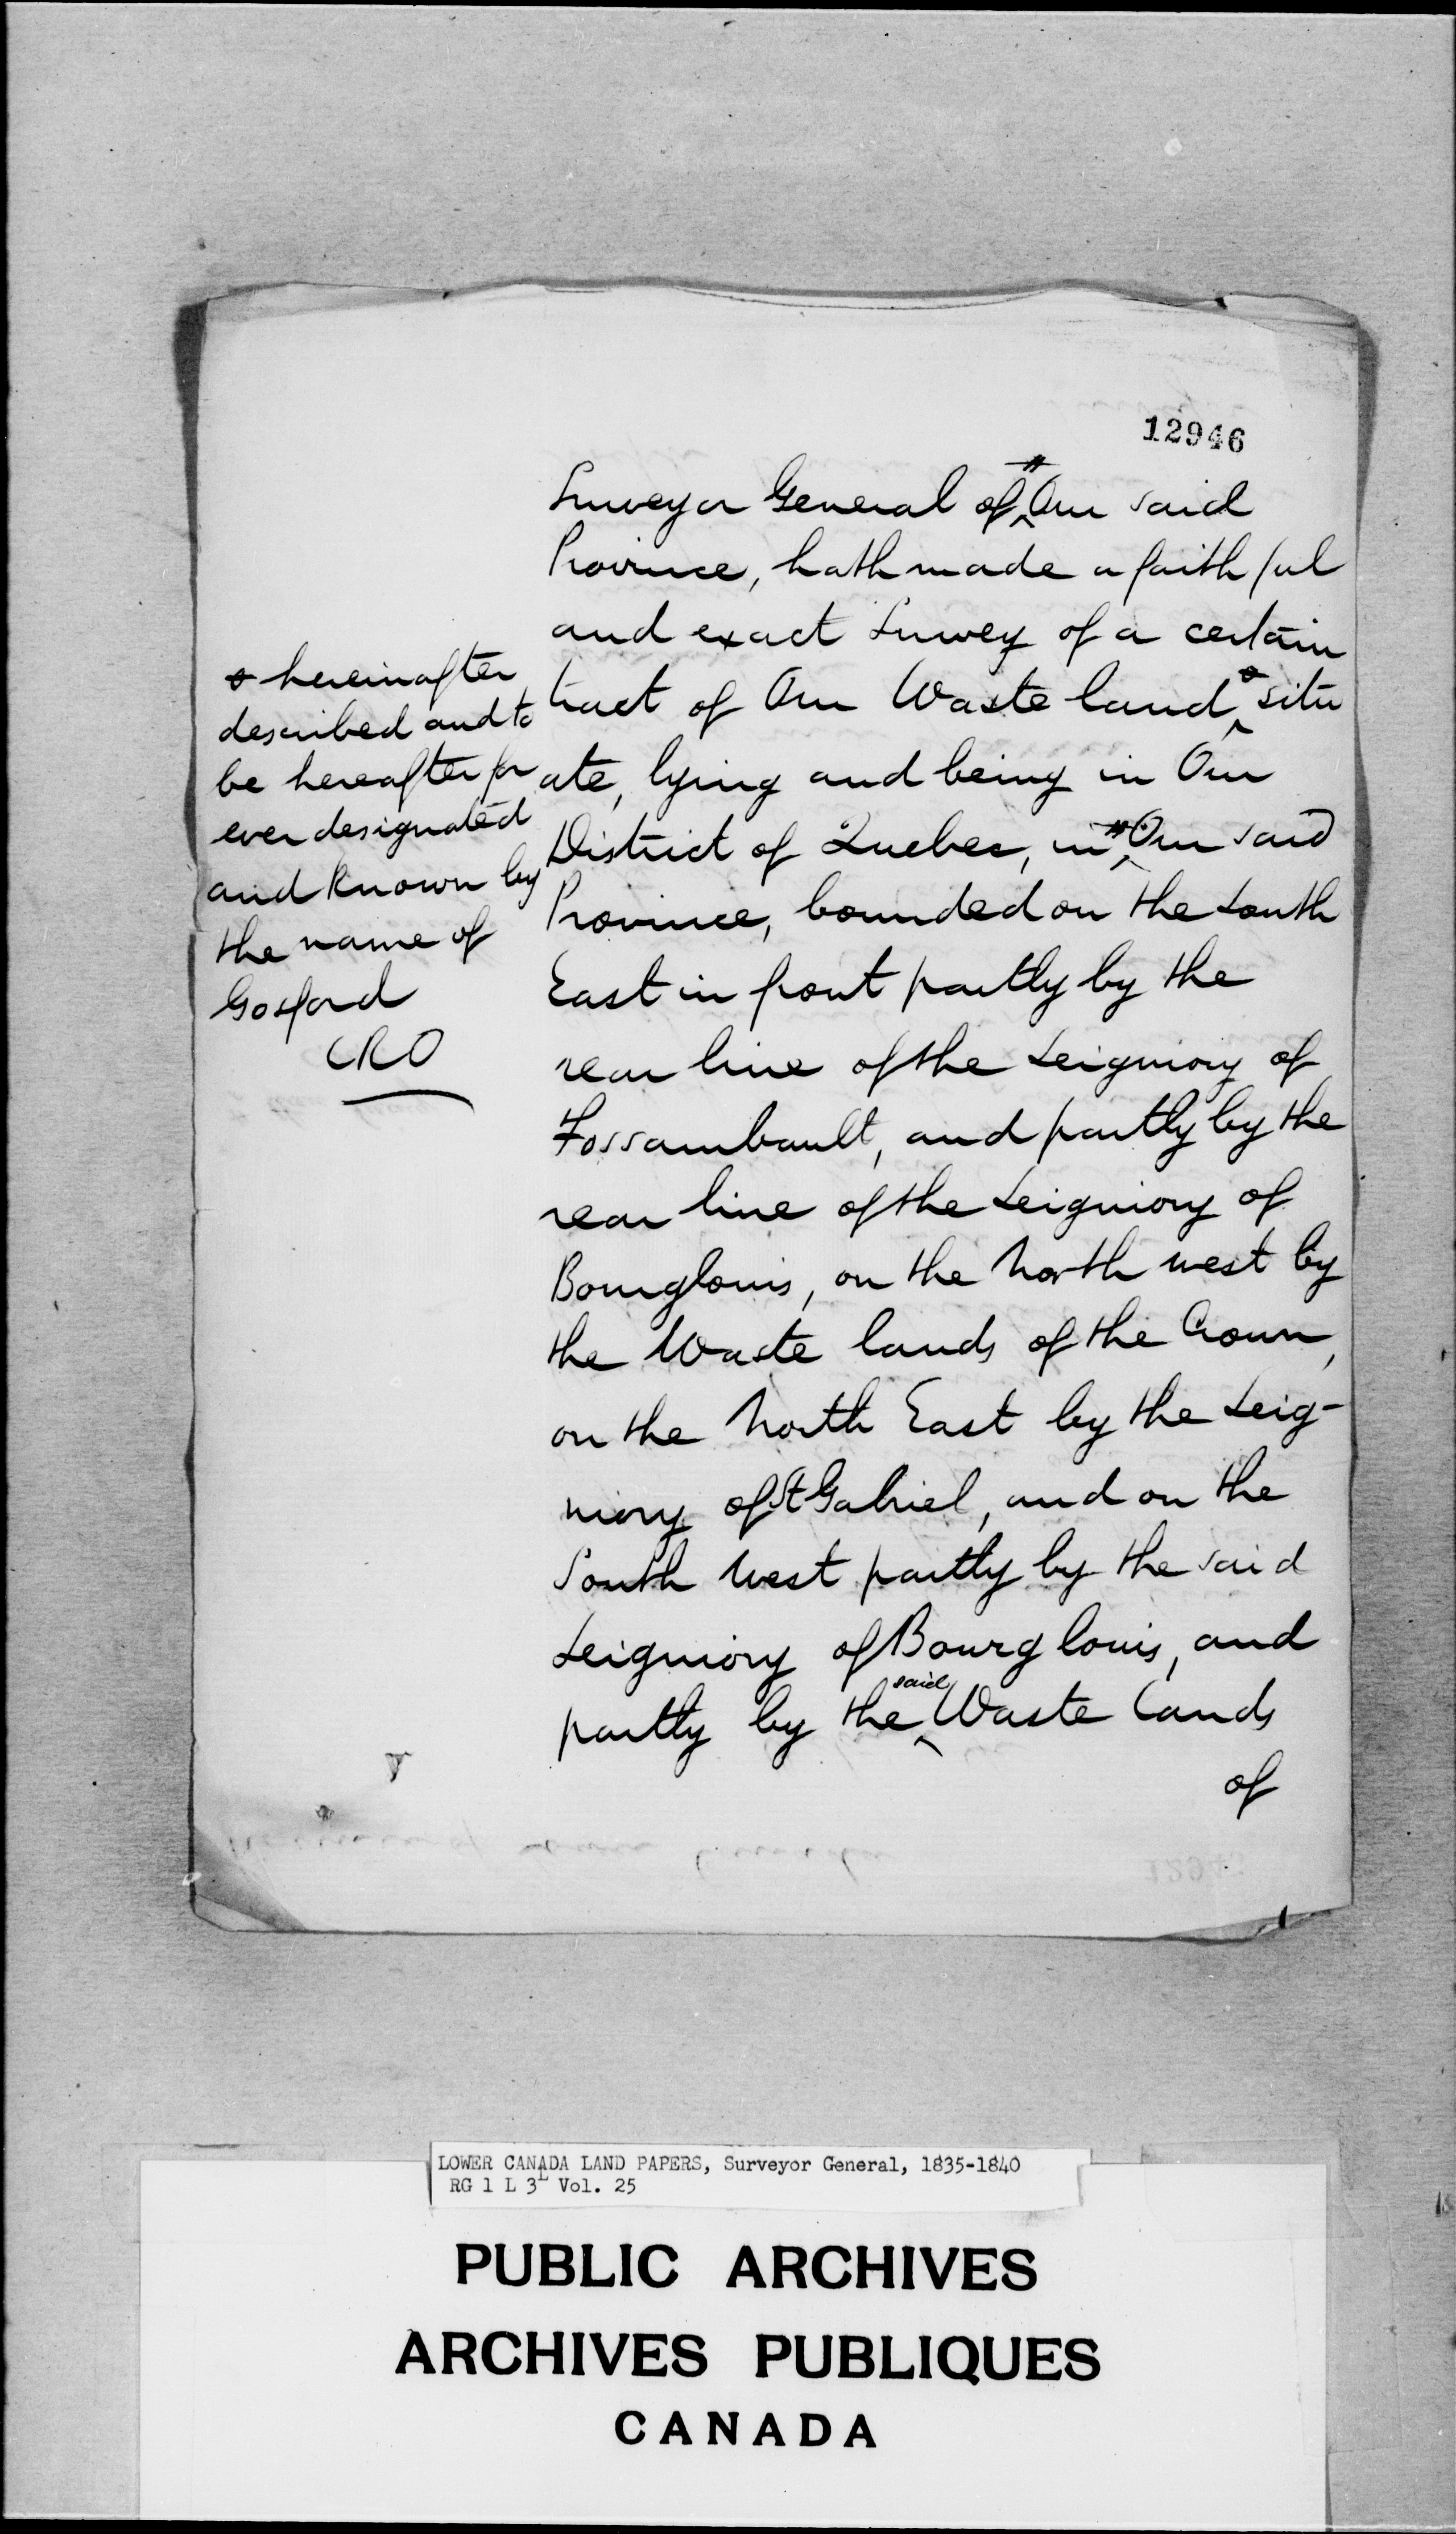 12946
Surveyor General of # Our said
Province, hath made a faithful
and exact Survey of a certain
tract of Our Waste land ꝋ situ
ate, lying and being in Our
District of Quebec, in # Our said
Province, bounded on the South
East in front partly by the
rear line of the Seigniory of
Fossambault, and partly by the
rear line of the Seigniory of
Bourglouis, on the North west by
the Waste lands of the Crown,
on the North East by the Seig-
niory of St Gabriel, and on the
South West partly by the said
Seigniory of Bourg louis, and
partly by the said Waste Lands
of
ꝋ hereinafter
described and to
be hereafter for
ever designated
and known by
the name of
Gosford
CRO
LOWER CANADA LAND PAPERS, Surveyor General, 1835-1840
RG 1 L 3L Vol. 25
PUBLIC ARCHIVES
ARCHIVES PUBLIQUES
CANADA